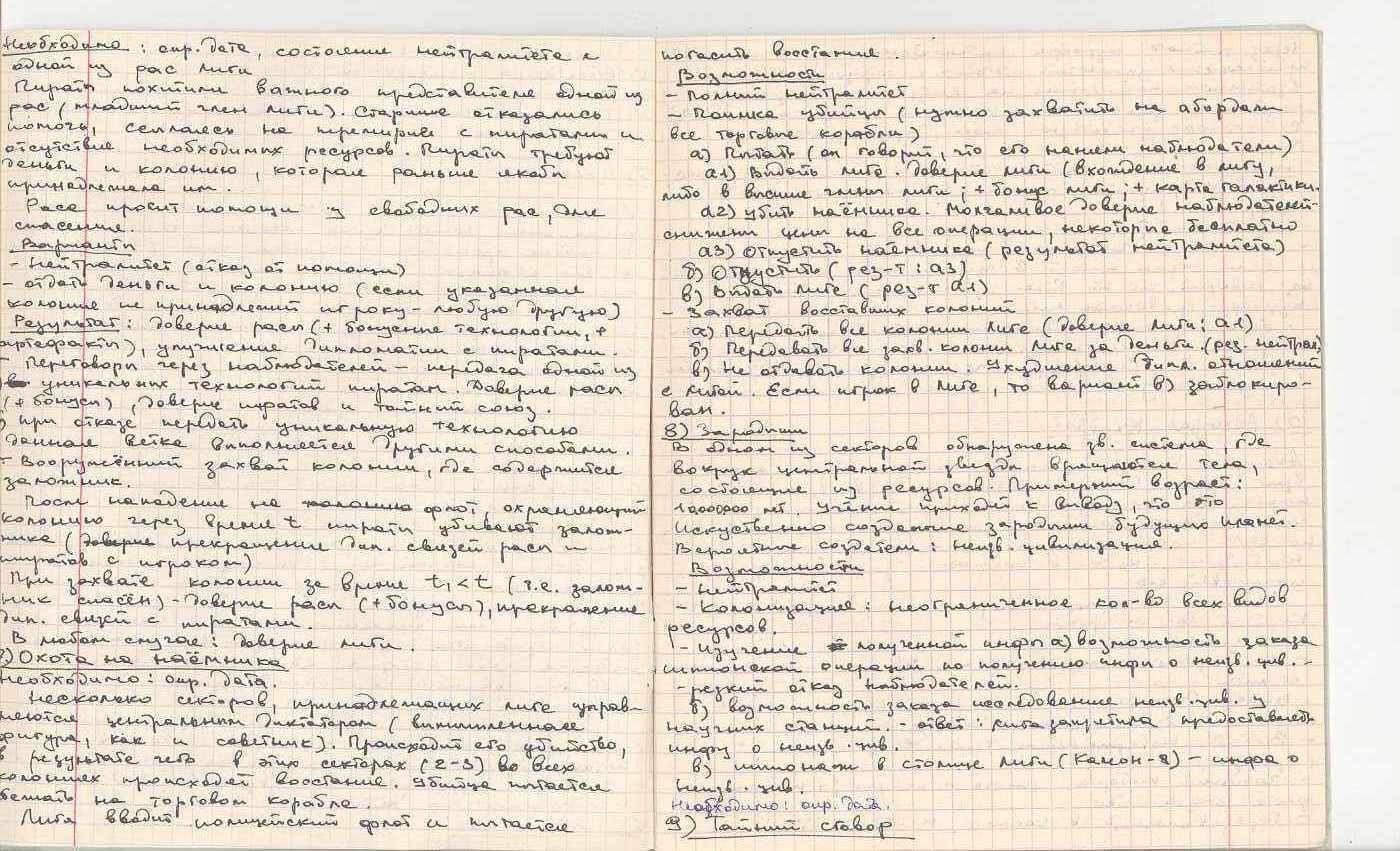 Необходимо : опр. дата, состояние нейтралитета с
одной из рас лиги
Пираты похитили важного представителя одной из
рас (младший член лиги). Старшие отказались
помочь, ссылаясь на перемирие с пиратами и
отсутствие необходимых ресурсов. Пираты требуют
деньги и колонию, которая раньше якобы
принадлежала им.
Раса просит помощи у свободных рас, для
спасения.
Варианты
- Нейтралитет (отказ от помощи)
- отдать деньги и колонию (если указанная
колония не принадлежит игроку - любую другую)
Результат : Доверие расы (+ бонусные технологии, +
артефакты), улучшение дипломатии с пиратами.
- Переговоры через наблюдателей - передача одной из
уникальных технологий пиратам. Доверие расы
(+ бонусы), доверие пиратов и тайный союз.
при отказе передать уникальную технологию
данная ветка выполняется другими способами.
- Вооружённый захват колонии, где содержится
заложник.
После нападения на флот, охраняющий
колонию через время t пираты убивают залож-
ника (прекращение дип. связей расы и
пиратов с игроком)
При захвате колонии за время t₁ < t (т.е. залож-
ник спасён) - доверие расы (+бонусы), прекращение
дип. связей с пиратами.
В любом случае : доверие лиги.
) Охота на наёмника
Необходимо : опр. дата.
Несколько секторов, принадлежащих лиге управ-
ляются центральным диктатором (вымышленная
фигура, как и советник). Происходит его убийство,
в результате чего в этих секторах (2-3) во всех
колониях происходят восстания. Убийца пытается
бежать на торговом корабле.
Лига вводит полицейский флот и пытается
погасить восстание.
Возможности
- Полный нейтралитет
- Поимка убийцы (нужно захватить на абордаж
все торговые корабли)
а) Пытать (он говорит, что его наняли наблюдатели)
а1) Выдать лиге. Доверие лиги (вхождение в лигу,
либо в высшие члены лиги ; + бонус лиги ; + карта галактики.
а2) Убить наёмника. Молчаливое доверие наблюдателей -
снижены цены на все операции, некоторые бесплатно
а3) Отпустить наёмника (результат нейтралитета)
б) Отпустить (рез-т : а3)
в) Выдать лиге (рез-т а1)
- Захват восставших колоний
а) Передать все колонии лиге (доверие лиги ; а1)
б) Передавать все захв. колонии лиге за деньги. (рез. нейтрал)
в) Не отдавать колонии. Ухудшение дипл. отношений
с лигой. Если игрок в лиге, то вариант в) заблокиро-
ван.
8) Зародыши
В одном из секторов обнаружена зв. система, где
вокруг центральной звезды вращаются тела,
состоящие из ресурсов. Примерный возраст :
10000000 лет. Учёные приходят к выводу, что это
искуственно созданные зародыши будущих планет.
Вероятные создатели : неизв. цивилизация.
Возможности
- Нейтралитет
- Колонизация : неограниченное кол-во всех видов
ресурсов.
- Изучение полученной инфы а) возможность заказа
шпионской операции по получению инфы о неизв. цив. -
- резкий отказ наблюдателей.
б) возможность заказа исследования неизв. цив. у
научных станций. - ответ : лига запретила предоставлять
инфу о неизв. цив.
в) шпионаж в столице лиги (Канон-8) - инфа о
неизв. цив.
Необходимо : опр. дата.
9) Тайный сговор